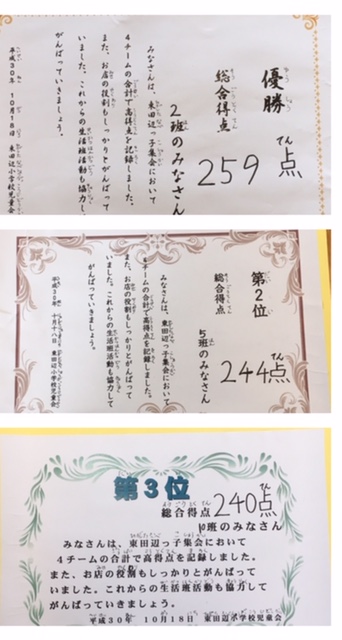 優勝
総合得点 259点
2班のみなさん
みなさんは、東田辺っ子集会において
4チームの合計で高得点を記録しました。
また、お店の役割もしっかりとがんばって
いました。これからの生活班活動も協力し、
がんばっていきましょう。
平成30年 10月18日 東田辺小学校児童会
第2位
総合得点 244点
5班のみなさん
みなさんは、東田辺っ子集会において
4チームの合計で高得点を記録しました。
また、お店の役割もしっかりとがんばって
いました。これからの生活班活動も協力して
がんばっていきましょう。
平成30年 十月十八日 東田辺小学校児童会
第3位
総合得点 240点
10班のみなさん
みなさんは、東田辺っ子集会において
4チームの合計で高得点を記録しました。
また、お店の役割もしっかりとがんばって
いました。これからの生活班活動も協力して
がんばっていきましょう。
平成30年 10月18日 東田辺小学校児童会